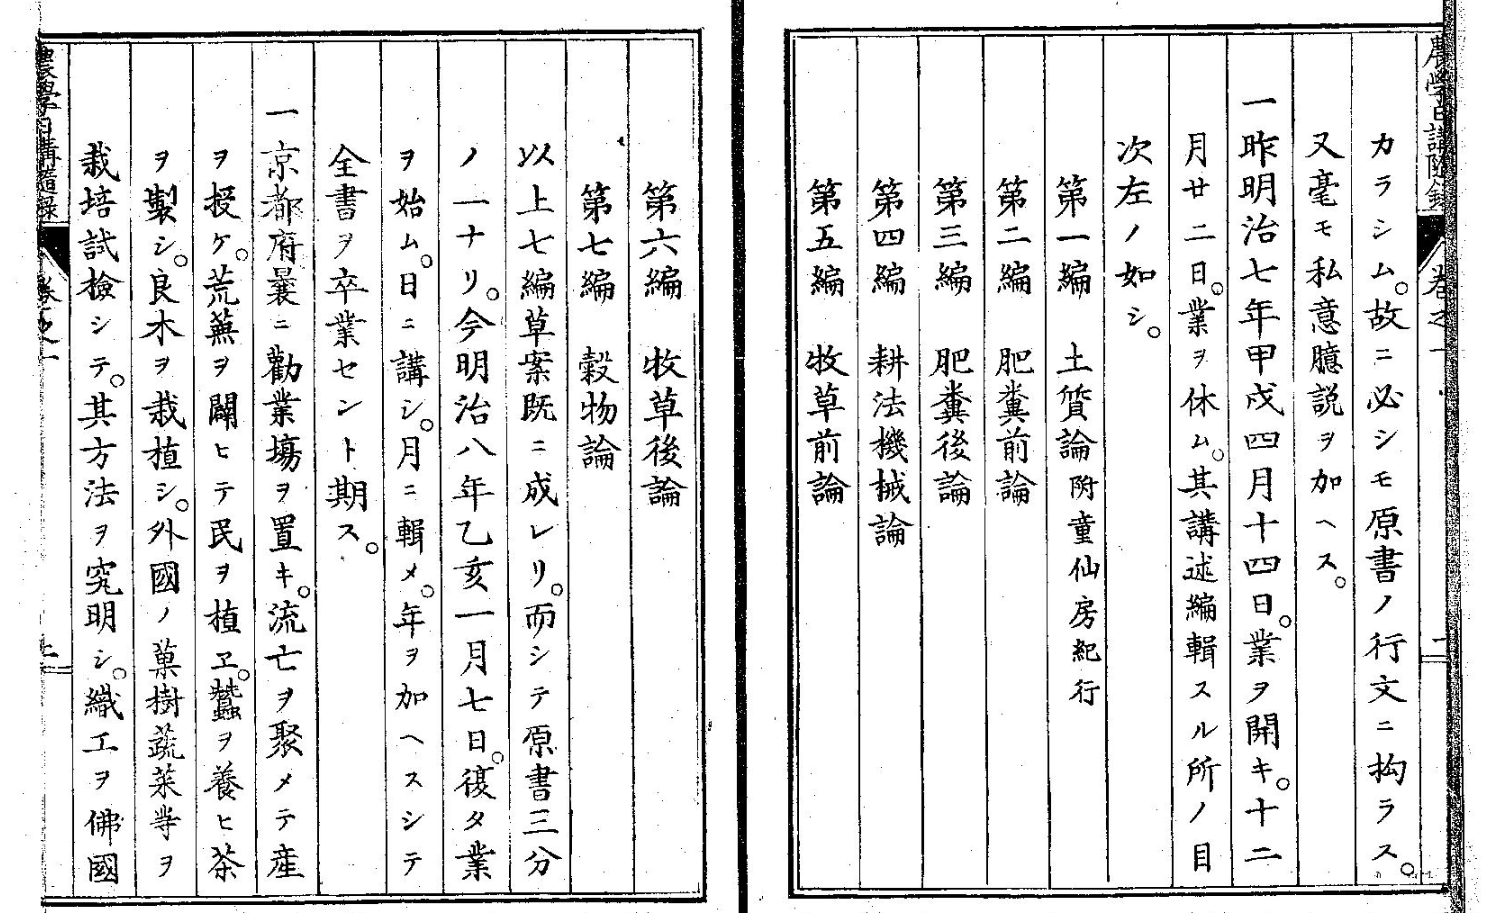 農學日講隨錄
卷之一
二
カラシム。故ニ必シモ原書ノ行文ニ拘ラス。
又毫モ私意臆説ヲ加ヘス。
一昨明治七年甲戌四月十四日。業ヲ開キ。十二
月廿二日。業ヲ休ム。其講述編輯スル所ノ目
次左ノ如シ。
第一編 土質論 附童仙房紀行
第二編 肥糞前論
第三編 肥糞後論
第四編 耕法機械論
第五編 牧草前論
第六編 牧草後論
第七編 穀物論
以上七編草案既ニ成レリ。而シテ原書三分
ノ一ナリ。今明治八年乙亥一月七日。復タ業
ヲ始ム。日ニ講シ。月ニ輯メ。年ヲ加ヘスシテ
全書ヲ卒業セント期ス。
一京都府曩ニ勸業塲ヲ置キ。流亡ヲ聚メテ産
ヲ授ケ。荒蕪ヲ闢ヒテ民ヲ植ヱ。蠶ヲ養ヒ茶
ヲ製シ。良木ヲ栽植シ。外國ノ菓樹蔬菜等ヲ
栽培試檢シテ。其方法ヲ究明シ。織工ヲ佛國
農學日講隨錄
卷之一